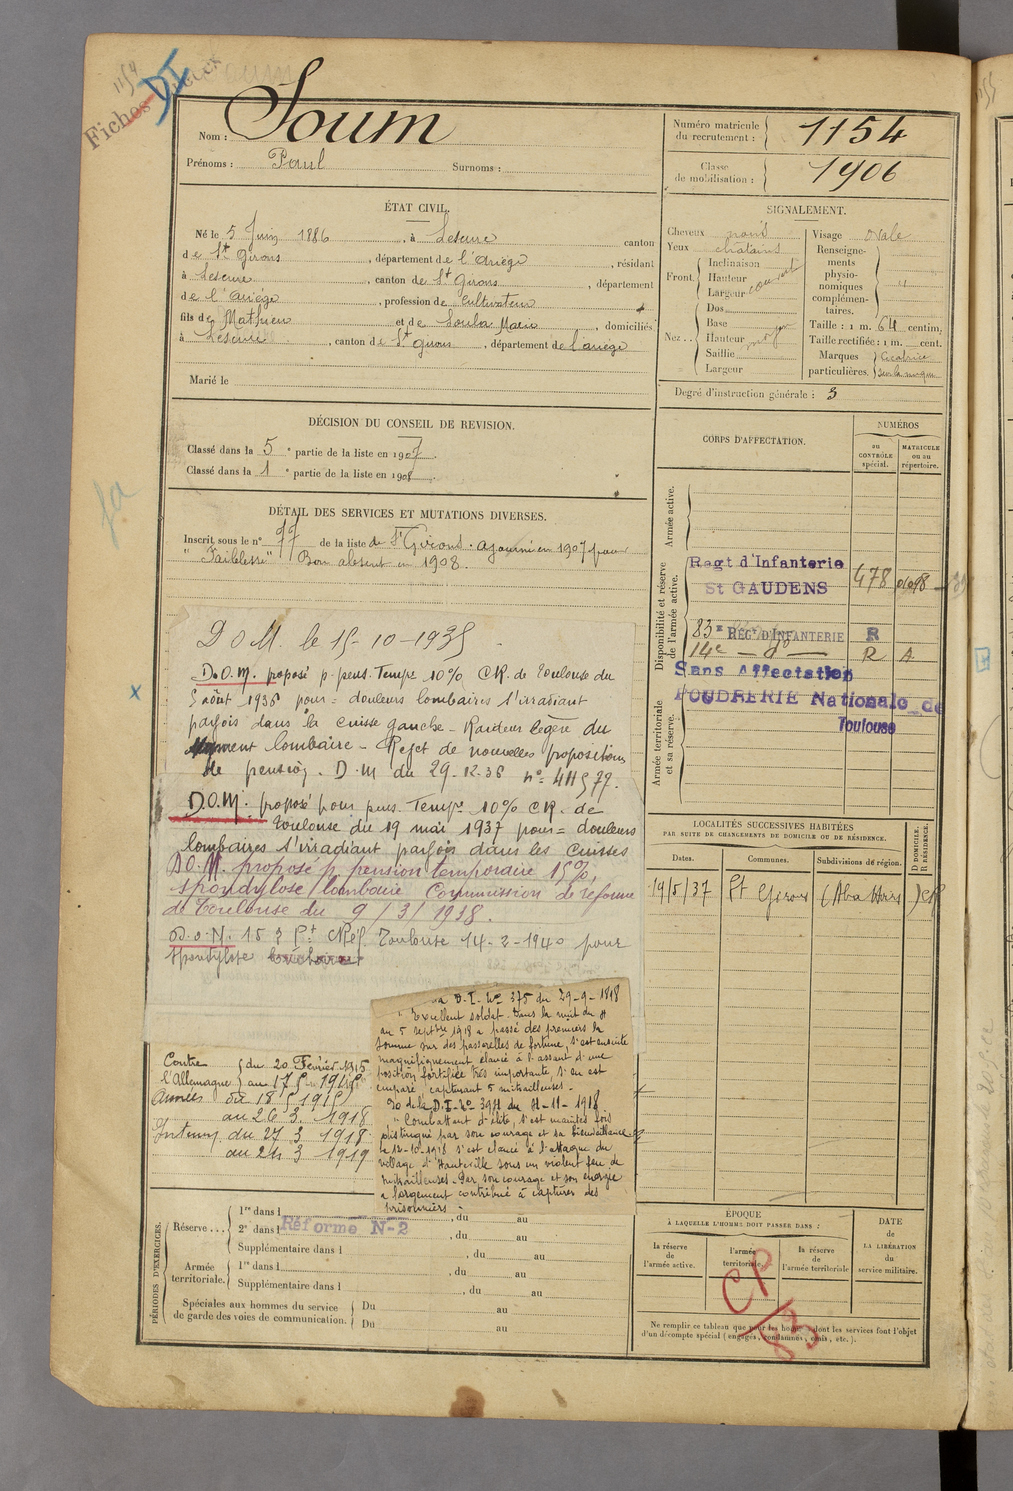 1154
Fiches
DI
Nom : Soum
Prénoms : Paul Surnoms :
Numéro matricule du recrutement : 1154
Classe de mobilisation : 1906
ÉTAT CIVIL.
Né le 5 Juin 1886, à Lescure canton
de St Girons, département de l'Ariège, résidant
à Lescure, canton de St Girons, département
de l'Ariège, profession de Cultivateur
fils de Mathieu et de Soula Marie, domiciliés
à Lescure, canton de St Girons, département de l'Ariège
Marié le
SIGNALEMENT.
Cheveux noirs
Yeux chatains
Front. Inclinaison
Hauteur
Largeur couvert
Nez... Dos
Base
Hauteur moyen
Saillie
Largeur
Visage ovale
Renseignements physionomiques complémentaires. "
Taille : 1 m. 64 centim.
Taille rectifiée : 1 m. cent.
Marques particulières. Cicatrice
Degré d'instruction générale : 3
DÉCISION DU CONSEIL DE REVISION.
Classé dans la 5e partie de la liste en 1907.
Classé dans la 1e partie de la liste en 1908.
DÉTAIL DES SERVICES ET MUTATIONS DIVERSES.
Inscrit sous le n° 77 de la liste de St Girons. Ajourné en 1907 pour
"Faiblesse" Bon absent en 1908.
D O M. le 15-10-1935
D.O.M. proposé p. pens. Tempre 10% C.R. de Toulouse du
5 août 1936 pour = douleurs lombaires s'irradiant
parfois dans la cuisse gauche - Raideur légère du
segment lombaire - Rejet de nouvelles propositions
de pension. D.M du 29-12-36 n°= 411577.
D.O.M. proposé pour pens. Tempre 10% C.R. de
Toulouse du 19 mai 1937 pour = douleurs
lombaires s'irradiant parfois dans les cuisses
D.O.M. proposé p. pension temporaire 15%,
spondylose lombaire Commission de réforme
de Toulouse du 9/3/1938.
D.O.M. 15 % Pt CRéf Toulouse 14-2-1940 pour
spondylose
D.I. N° 375 du 29-9-1918
"Excellent soldat. Dans la nuit du 4
au 5 septbre 1918 a passé des premiers la
Somme sur des passerelles de fortune, s'est ensuite
magnifiquement élancé à l'assaut d'une
position fortifiée très importante, s'en est
emparé, capturant 5 mitrailleuses.
O de la D.I. N° 394 du 4-11-1918
"Combattant d'élite, s'est maintes fois
distingué par son courage et sa bienveillance
le 12-10-1918 s'est élancé à l'attaque du
village d'Hauteville sous un violent feu de
mitrailleuses. Par son courage et son énergie
a largement contribué à capturer des
prisonniers
Contre l'Allemagne du 20 Février 1915
au 17 5 1915
Armées du 18 5 1915
au 26 3 1918
Intérieur du 27 3 1918
au 24 3 1919
CORPS D'AFFECTATION.
NUMÉROS
au CONTRÔLE spécial.
MATRICULE ou au répertoire.
Armée active.
Disponibilité et réserve de l'armée active.
Regt d'Infanterie
St GAUDENS 478
83e REGt D'INFANTERIE R
14e — do — R A
Armée territoriale et sa réserve.
Sans Affectation
POUDRERIE Nationale de
Toulouse
LOCALITÉS SUCCESSIVES HABITÉES
PAR SUITE DE CHANGEMENTS DE DOMICILE OU DE RÉSIDENCE.
Dates. Communes. Subdivisions de région. D DOMICILE. R RÉSIDENCE.
19/5/37 St Girons
PÉRIODES D'EXERCICES.
Réserve ... 1re dans l , du au
2e dans l Réforme N-2 , du au
Supplémentaire dans l , du au
Armée territoriale. 1re dans l , du au
Supplémentaire dans l , du au
Spéciales aux hommes du service de garde des voies de communication. Du au
Du au
ÉPOQUE
À LAQUELLE L'HOMME DOIT PASSER DANS :
la réserve de l'armée active.
l'armée territoriale.
la réserve de l'armée territoriale
DATE de LA LIBÉRATION du service militaire.
Ne remplir ce tableau que pour les hommes dont les services font l'objet
d'un décompte spécial (engagés, condamnés, omis, etc.).